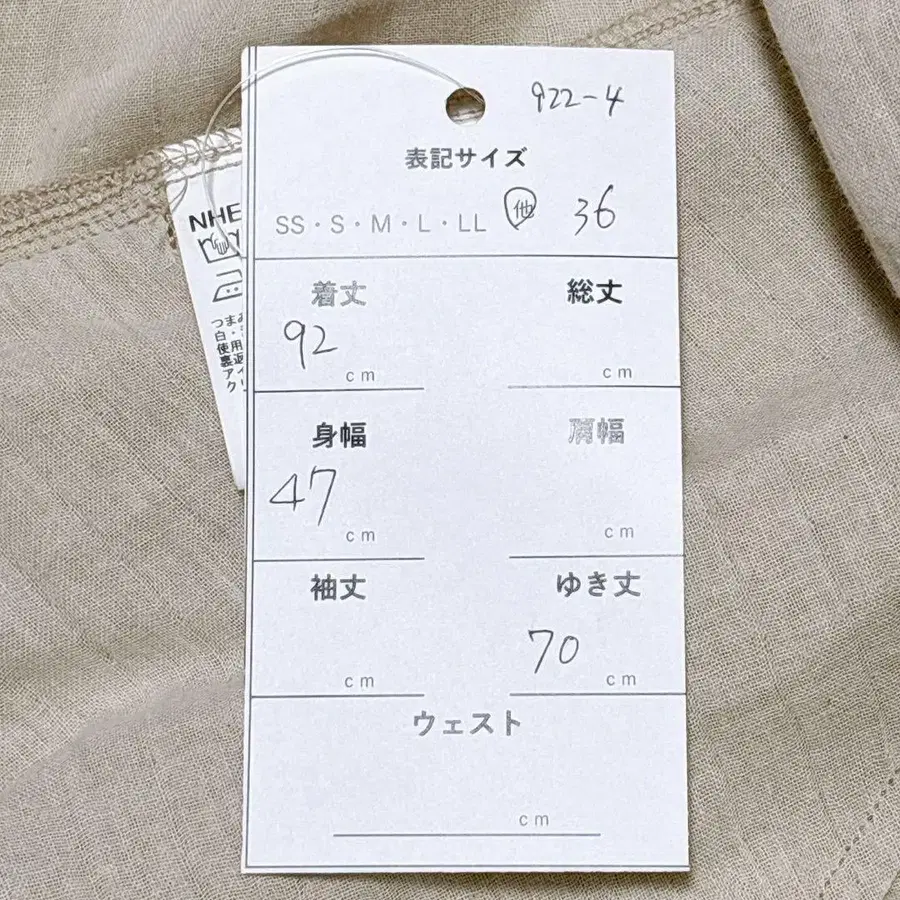 922-4
表記サイズ
SS・S・M・L・LL 他 36
着丈 総丈
92
cm cm
身幅 肩幅
47
cm cm
袖丈 ゆき丈
70
cm cm
ウェスト
cm
NHE
つまみ
白・
使用
裏返
アイ
クリ